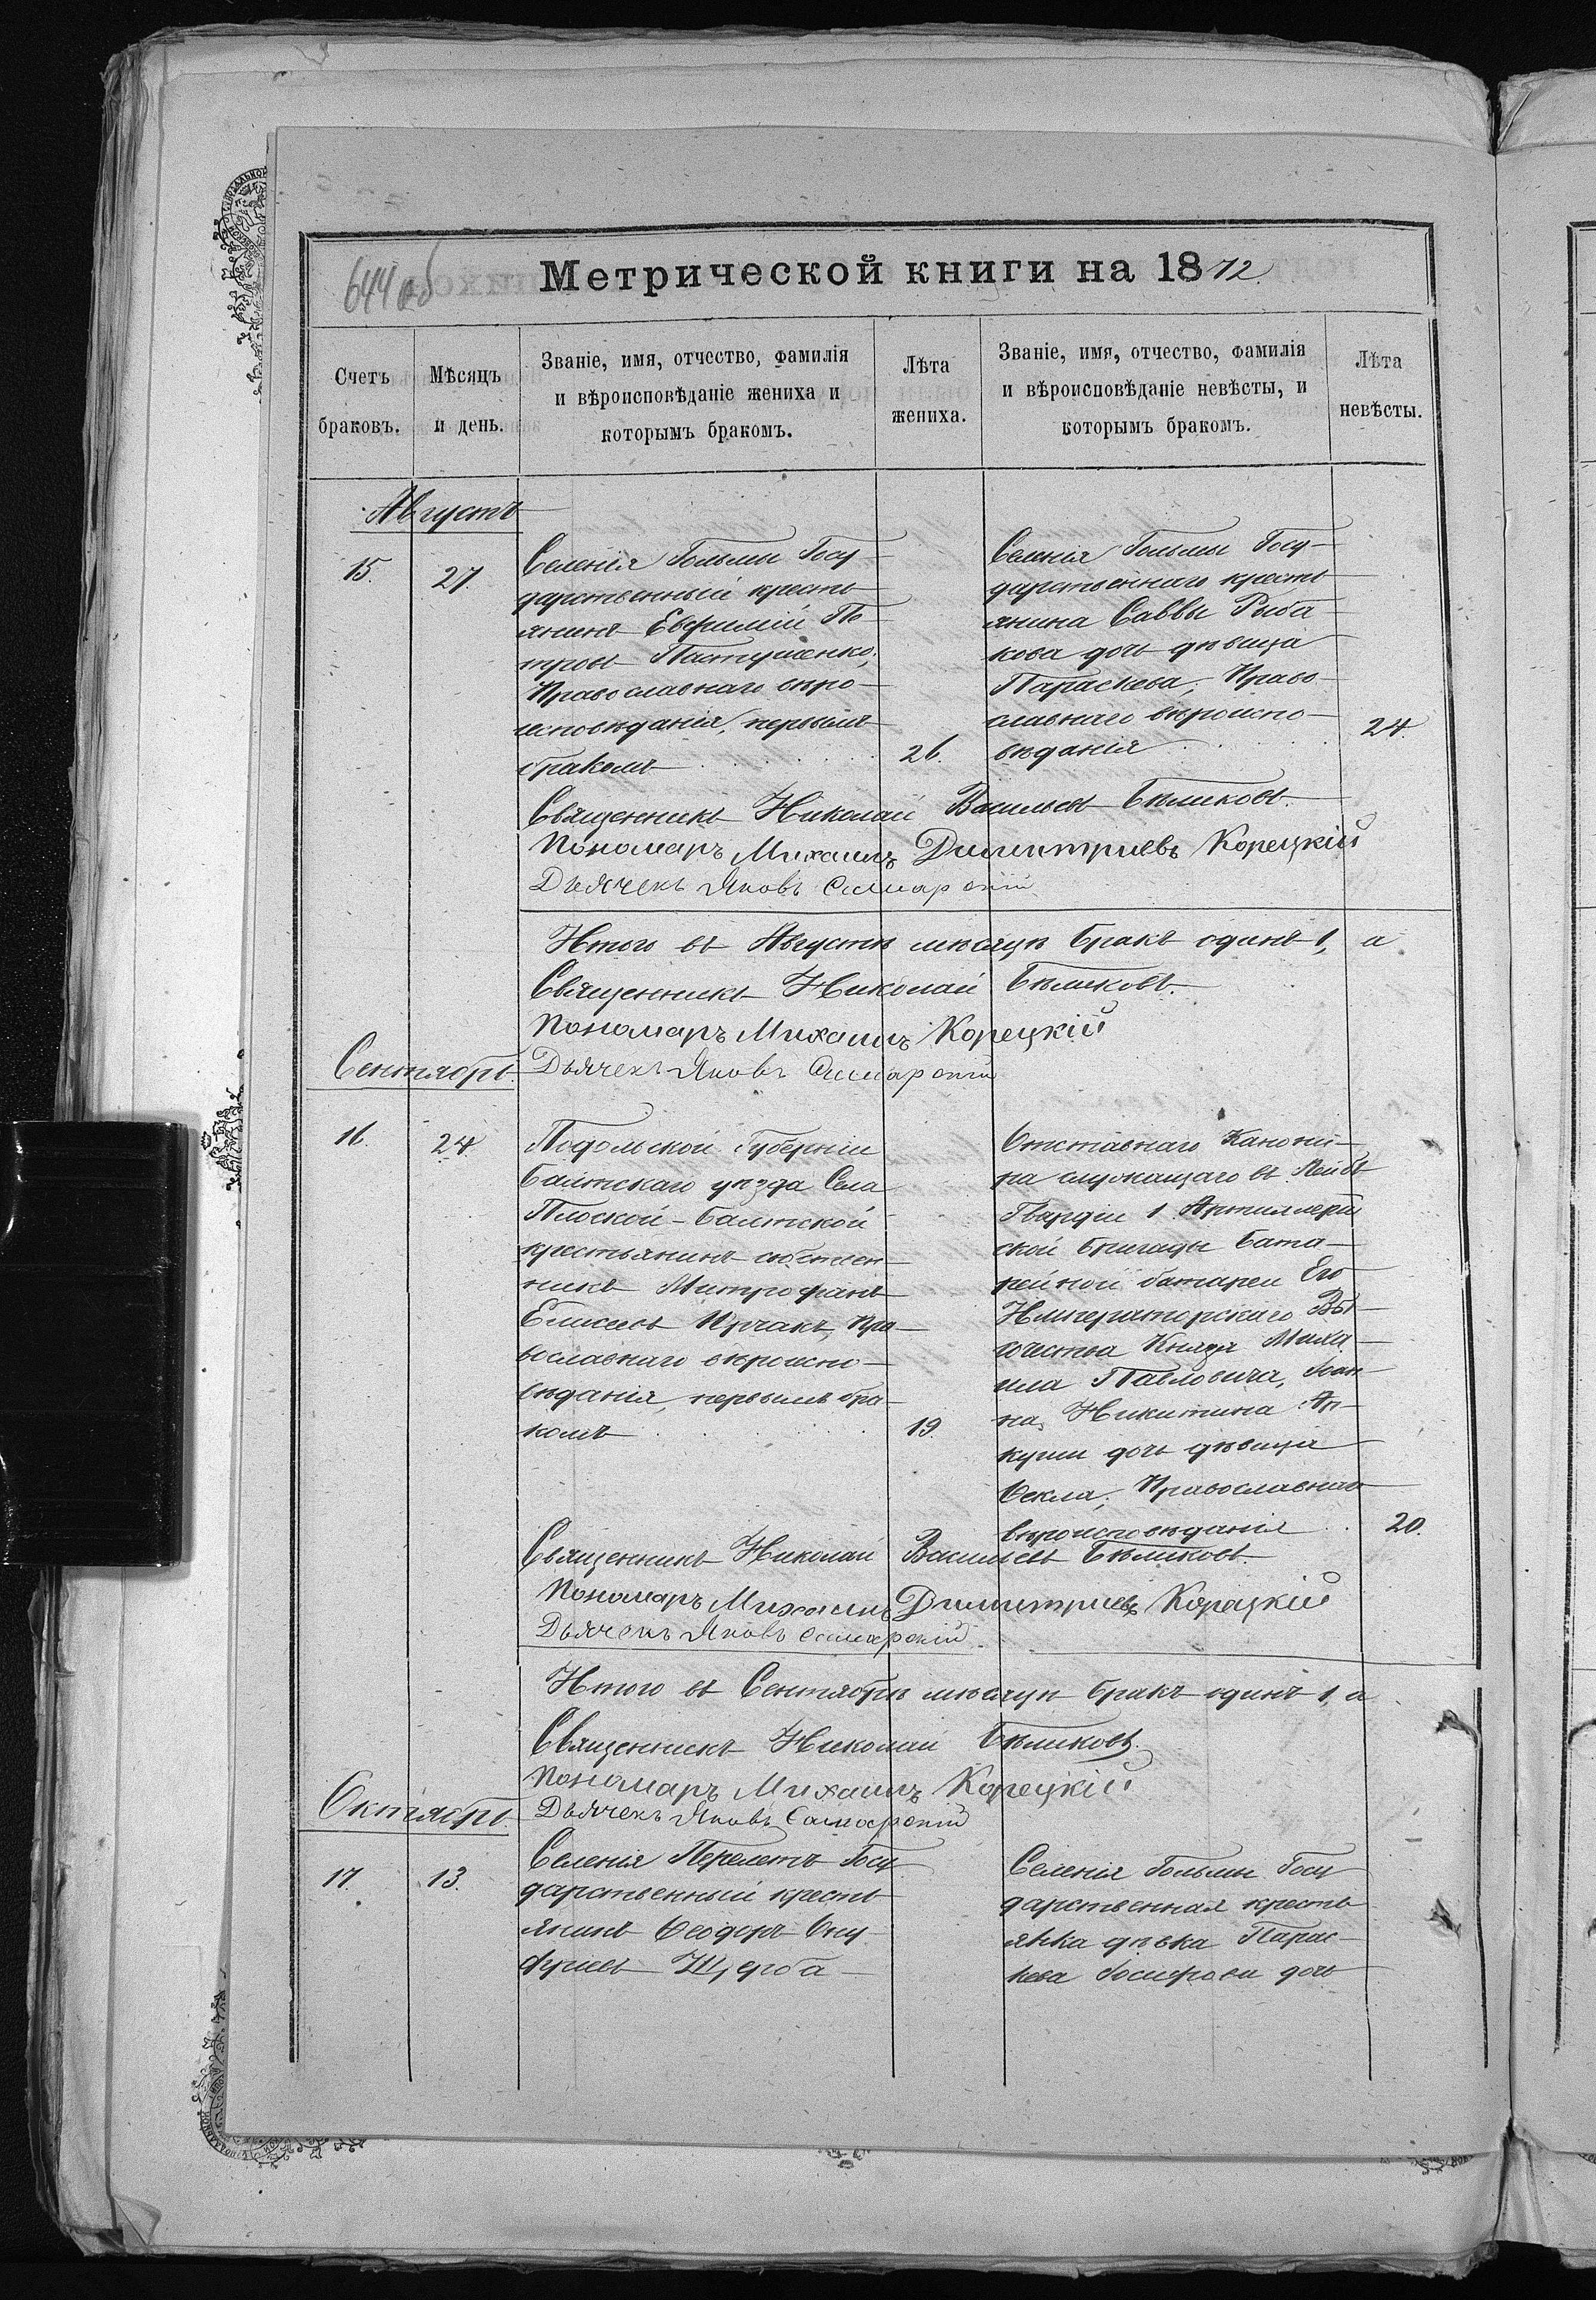 644 об
Метрической книги на 1872.
Счетъ браковъ.
Мѣсяцъ и день.
Званіе, имя, отчество, фамилія
и вѣроисповѣданіе жениха и
которымъ бракомъ.
Лѣта жениха.
Званіе, имя, отчество, фамилія
и вѣроисповѣданіе невѣсты, и
которымъ бракомъ.
Лѣта невѣсты.
Августъ
15.
27.
Селенія Гольмы Госу-
дарственный кресть-
янинъ Евфимій Пе-
тровъ Пастушенко,
Православнаго вѣро-
исповѣданія, первымъ
бракомъ
26.
Селенія Гольмы Госу-
дарственнаго кресть-
янина Саввы Рыба-
кова дочь дѣвица
Параскева, Право-
славнаго вѣроиспо-
вѣданія
24.
Священникъ Николай Васильевъ Бѣликовъ.
Пономаръ Михаилъ Димитриевъ Корецкій
Дьячекъ Яковъ Самарскій
Итого въ Августѣ мѣсяцѣ бракъ одинъ 1, а
Священникъ Николай Бѣликовъ.
Пономаръ Михаилъ Корецкій
Дьячекъ Яковъ Самарскій
Сентябрь.
16.
24.
Подольской Губерніи
Балтскаго уѣзда Села
Плоской-Балтской
крестьянинъ собствен-
никъ Митрофанъ
Елисеевъ Пра-
вославнаго вѣроиспо-
вѣданія, первымъ бра-
комъ
19.
Отставнаго Канони-
ра служащаго въ Лейбъ
Гвардіи 1 Артиллерій
ской бригады бата-
рейной батареи Его
Императорскаго Вы-
сочества Князя Миха-
ила Павловича, Іоан-
на Никитина
дочь дѣвица
Ѳекла, Православнаго
вѣроисповѣданія
20.
Священникъ Николай Васильевъ Бѣликовъ.
Пономаръ Михаилъ Димитриевъ Корецкій
Дьячекъ Яковъ Самарскій
Итого въ Сентябрѣ мѣсяцѣ бракъ одинъ 1, а
Священникъ Николай Бѣликовъ.
Пономаръ Михаилъ Корецкій
Дьячекъ Яковъ Самарскій
Октябрь.
17.
13.
Селенія Перелетъ Госу
дарственный кресть-
янинъ Ѳеодоръ Ону-
фріевъ Щерба
Селенія Гольмы Госу
дарственная кресть
янка дѣвка Парас-
кева Іосифова дочь